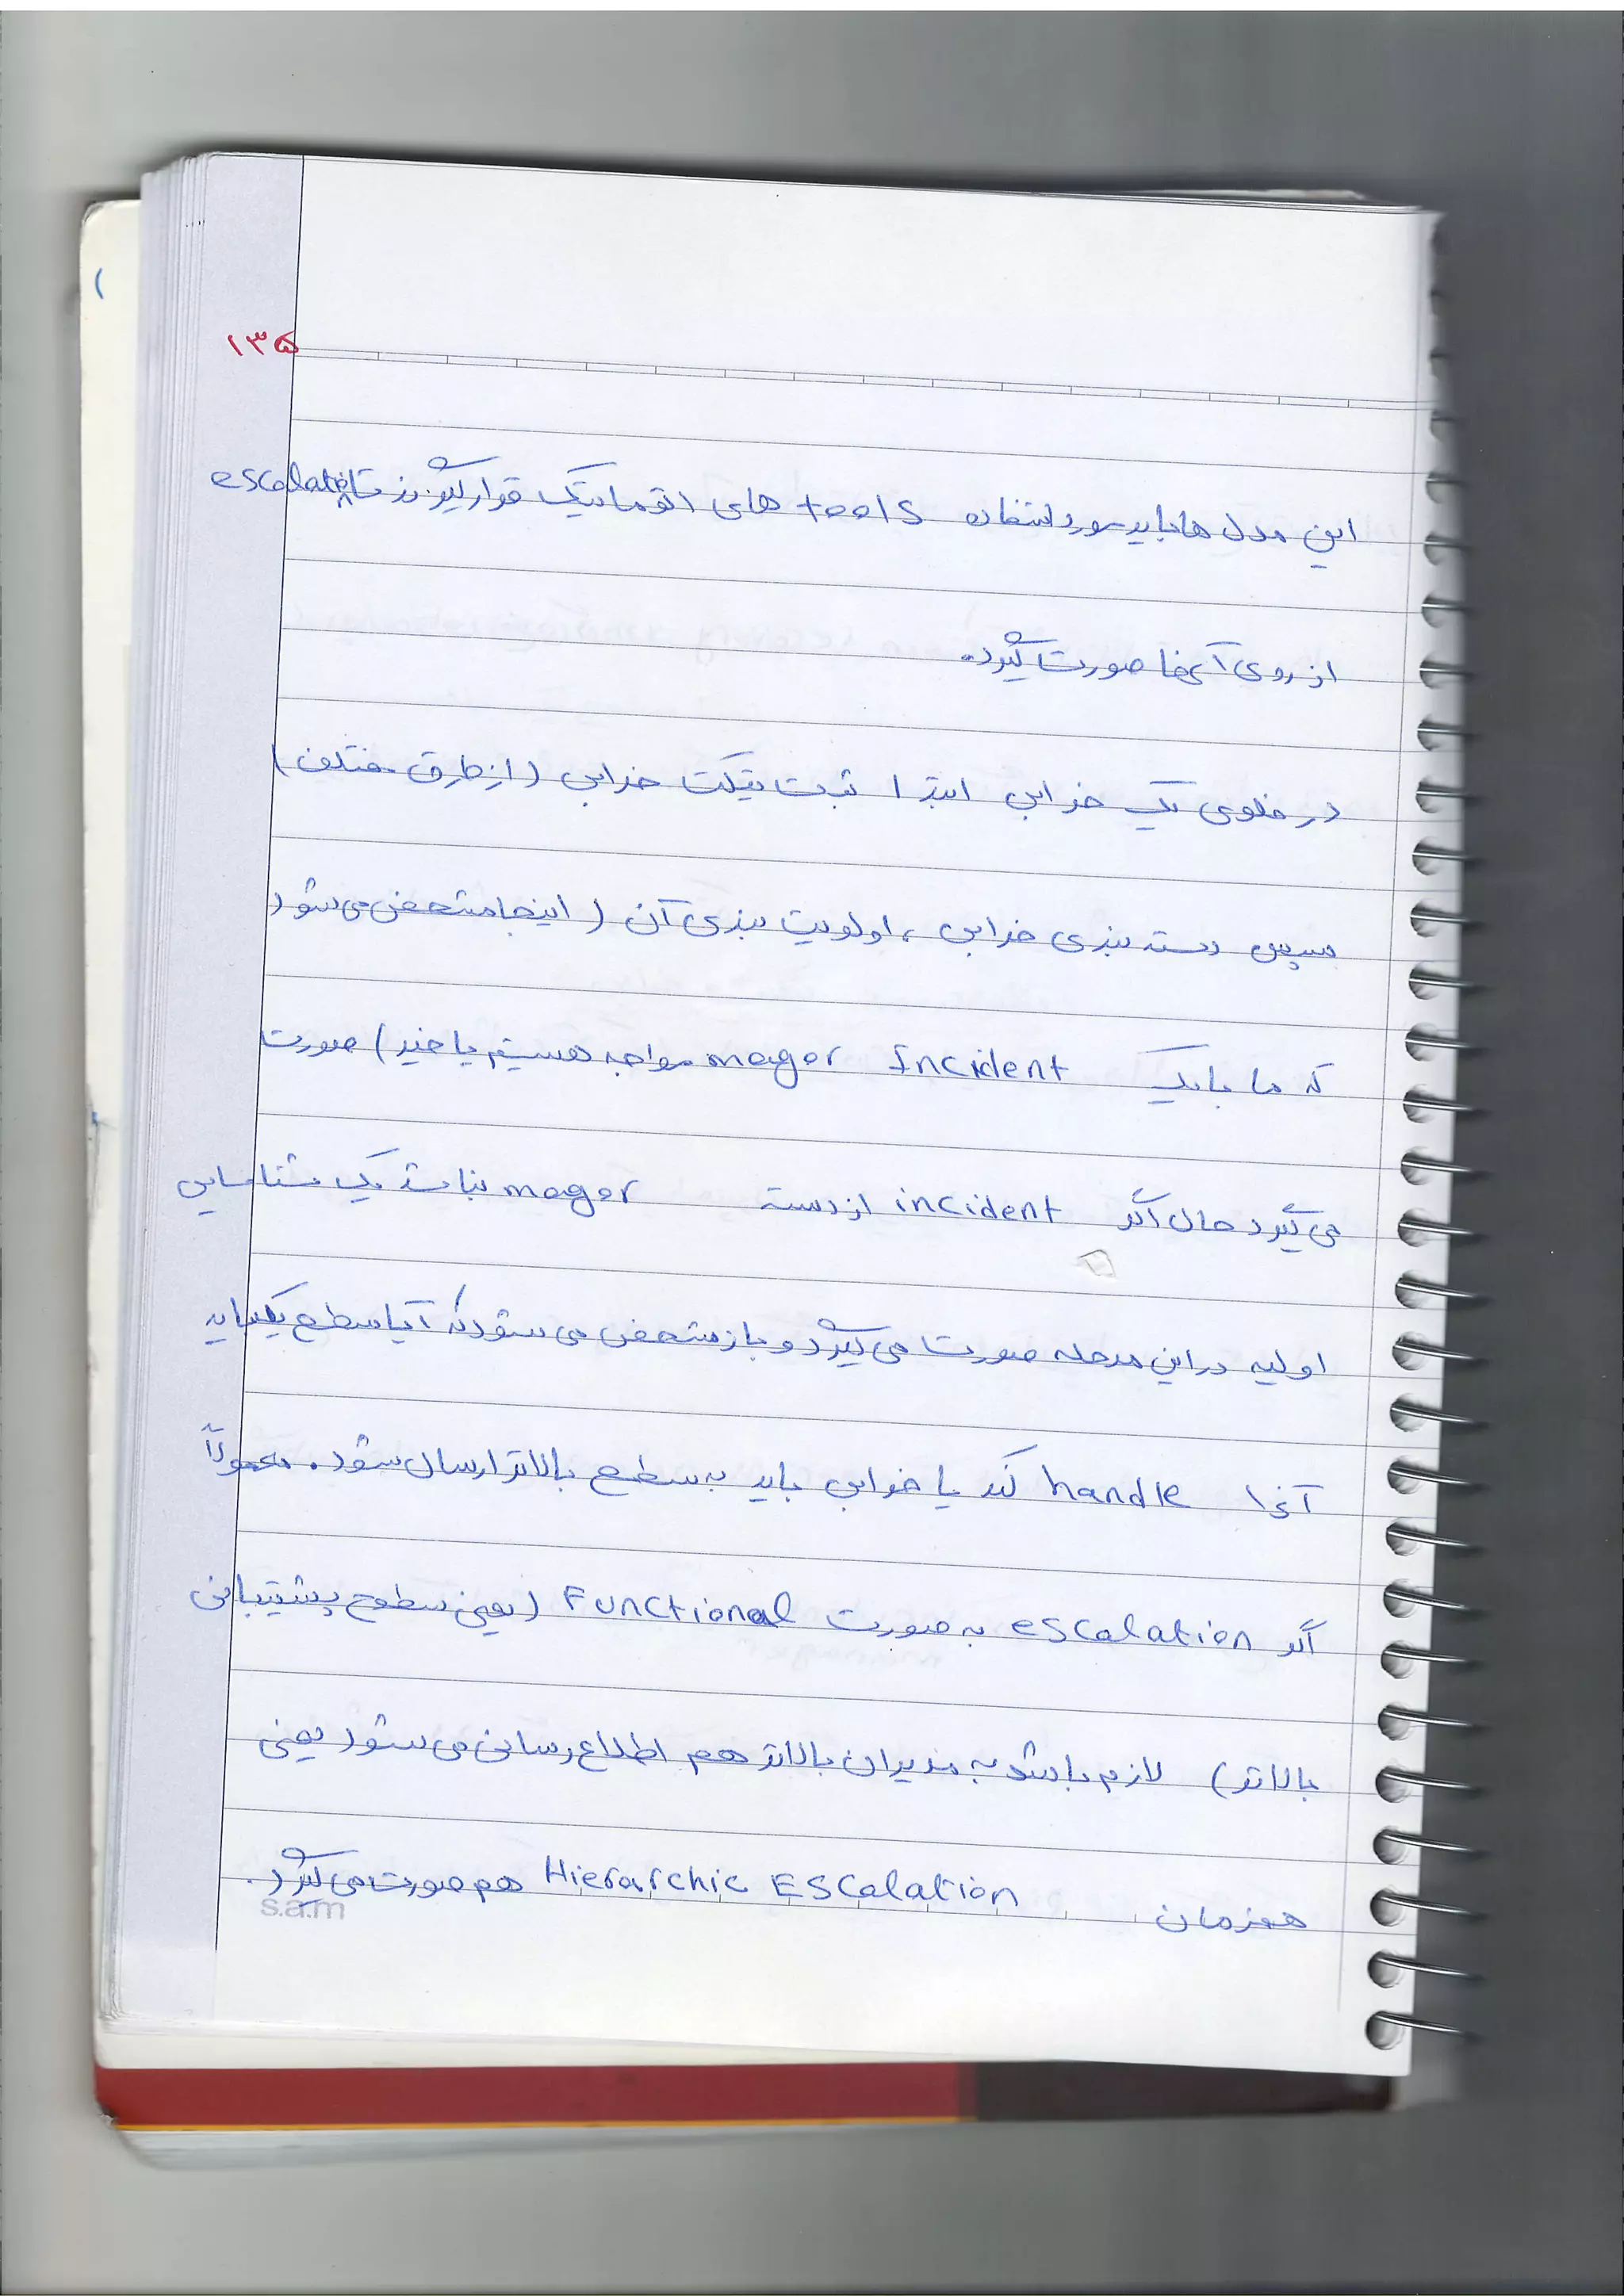 ۱۳۵
این مدل ها باید مورد استفاده tools های اتوماتیک قرار گیرند تا escalate
از روی آنها صورت گیرد.
در فلوی یک خرابی ابتدا ثبت تیکت خرابی (از طرق مختلف)
سپس دسته بندی خرابی، اولویت بندی آن (اینجا مشخص می شود
که ما با یک mager Incident مواجه هستیم یا خیر) صورت
می گیرد حال اگر incident از دسته mager نباشد یک شناسایی
اولیه در این مرحله صورت می گیرد و باز مشخص می شود که آیا سطح یک باید
آنرا handle کند یا خرابی باید به سطح بالاتر ارسال شود. معمولاً
اگر escalation به صورت Functional (یعنی سطوح پشتیبانی
بالاتر) لازم باشد به مدیران بالاتر هم اطلاع رسانی می شود یعنی
همزمان Hierarchic Escalation هم صورت می گیرد.
s.a.m